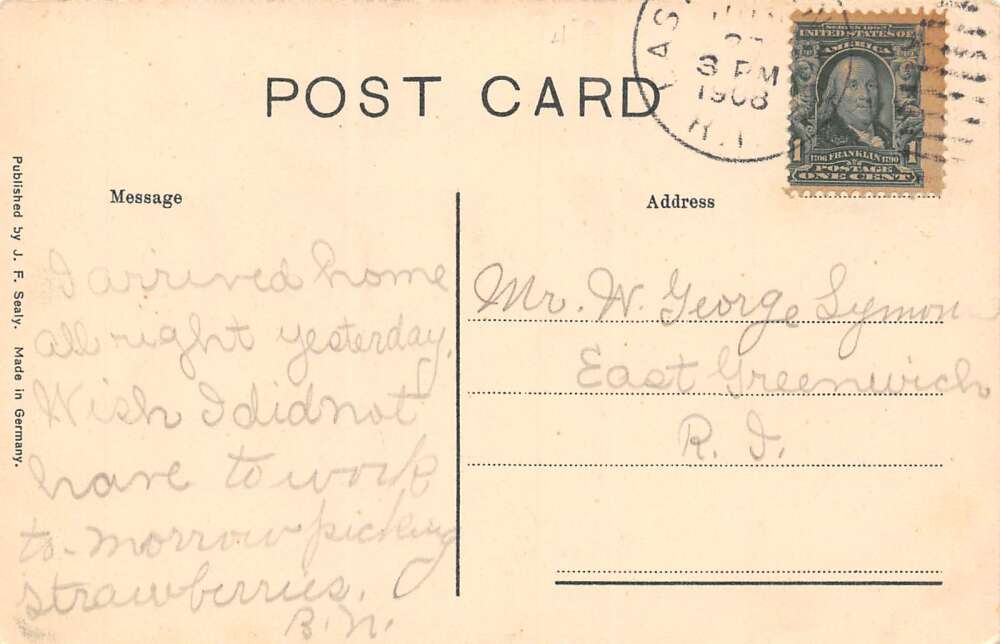 POST CARD
3 PM
1908
R.I.
SERIES 1902
UNITED STATES OF
AMERICA
1 1706 FRANKLIN 1790 1
POSTAGE
ONE CENT
Message
Address
I arrived home
all right yesterday.
Wish I did not
have to work
to-morrow picking
strawberries.
B.N.
Mr. W. George
East Greenwich
R. I.
Published by J. F. Sealy. Made in Germany.